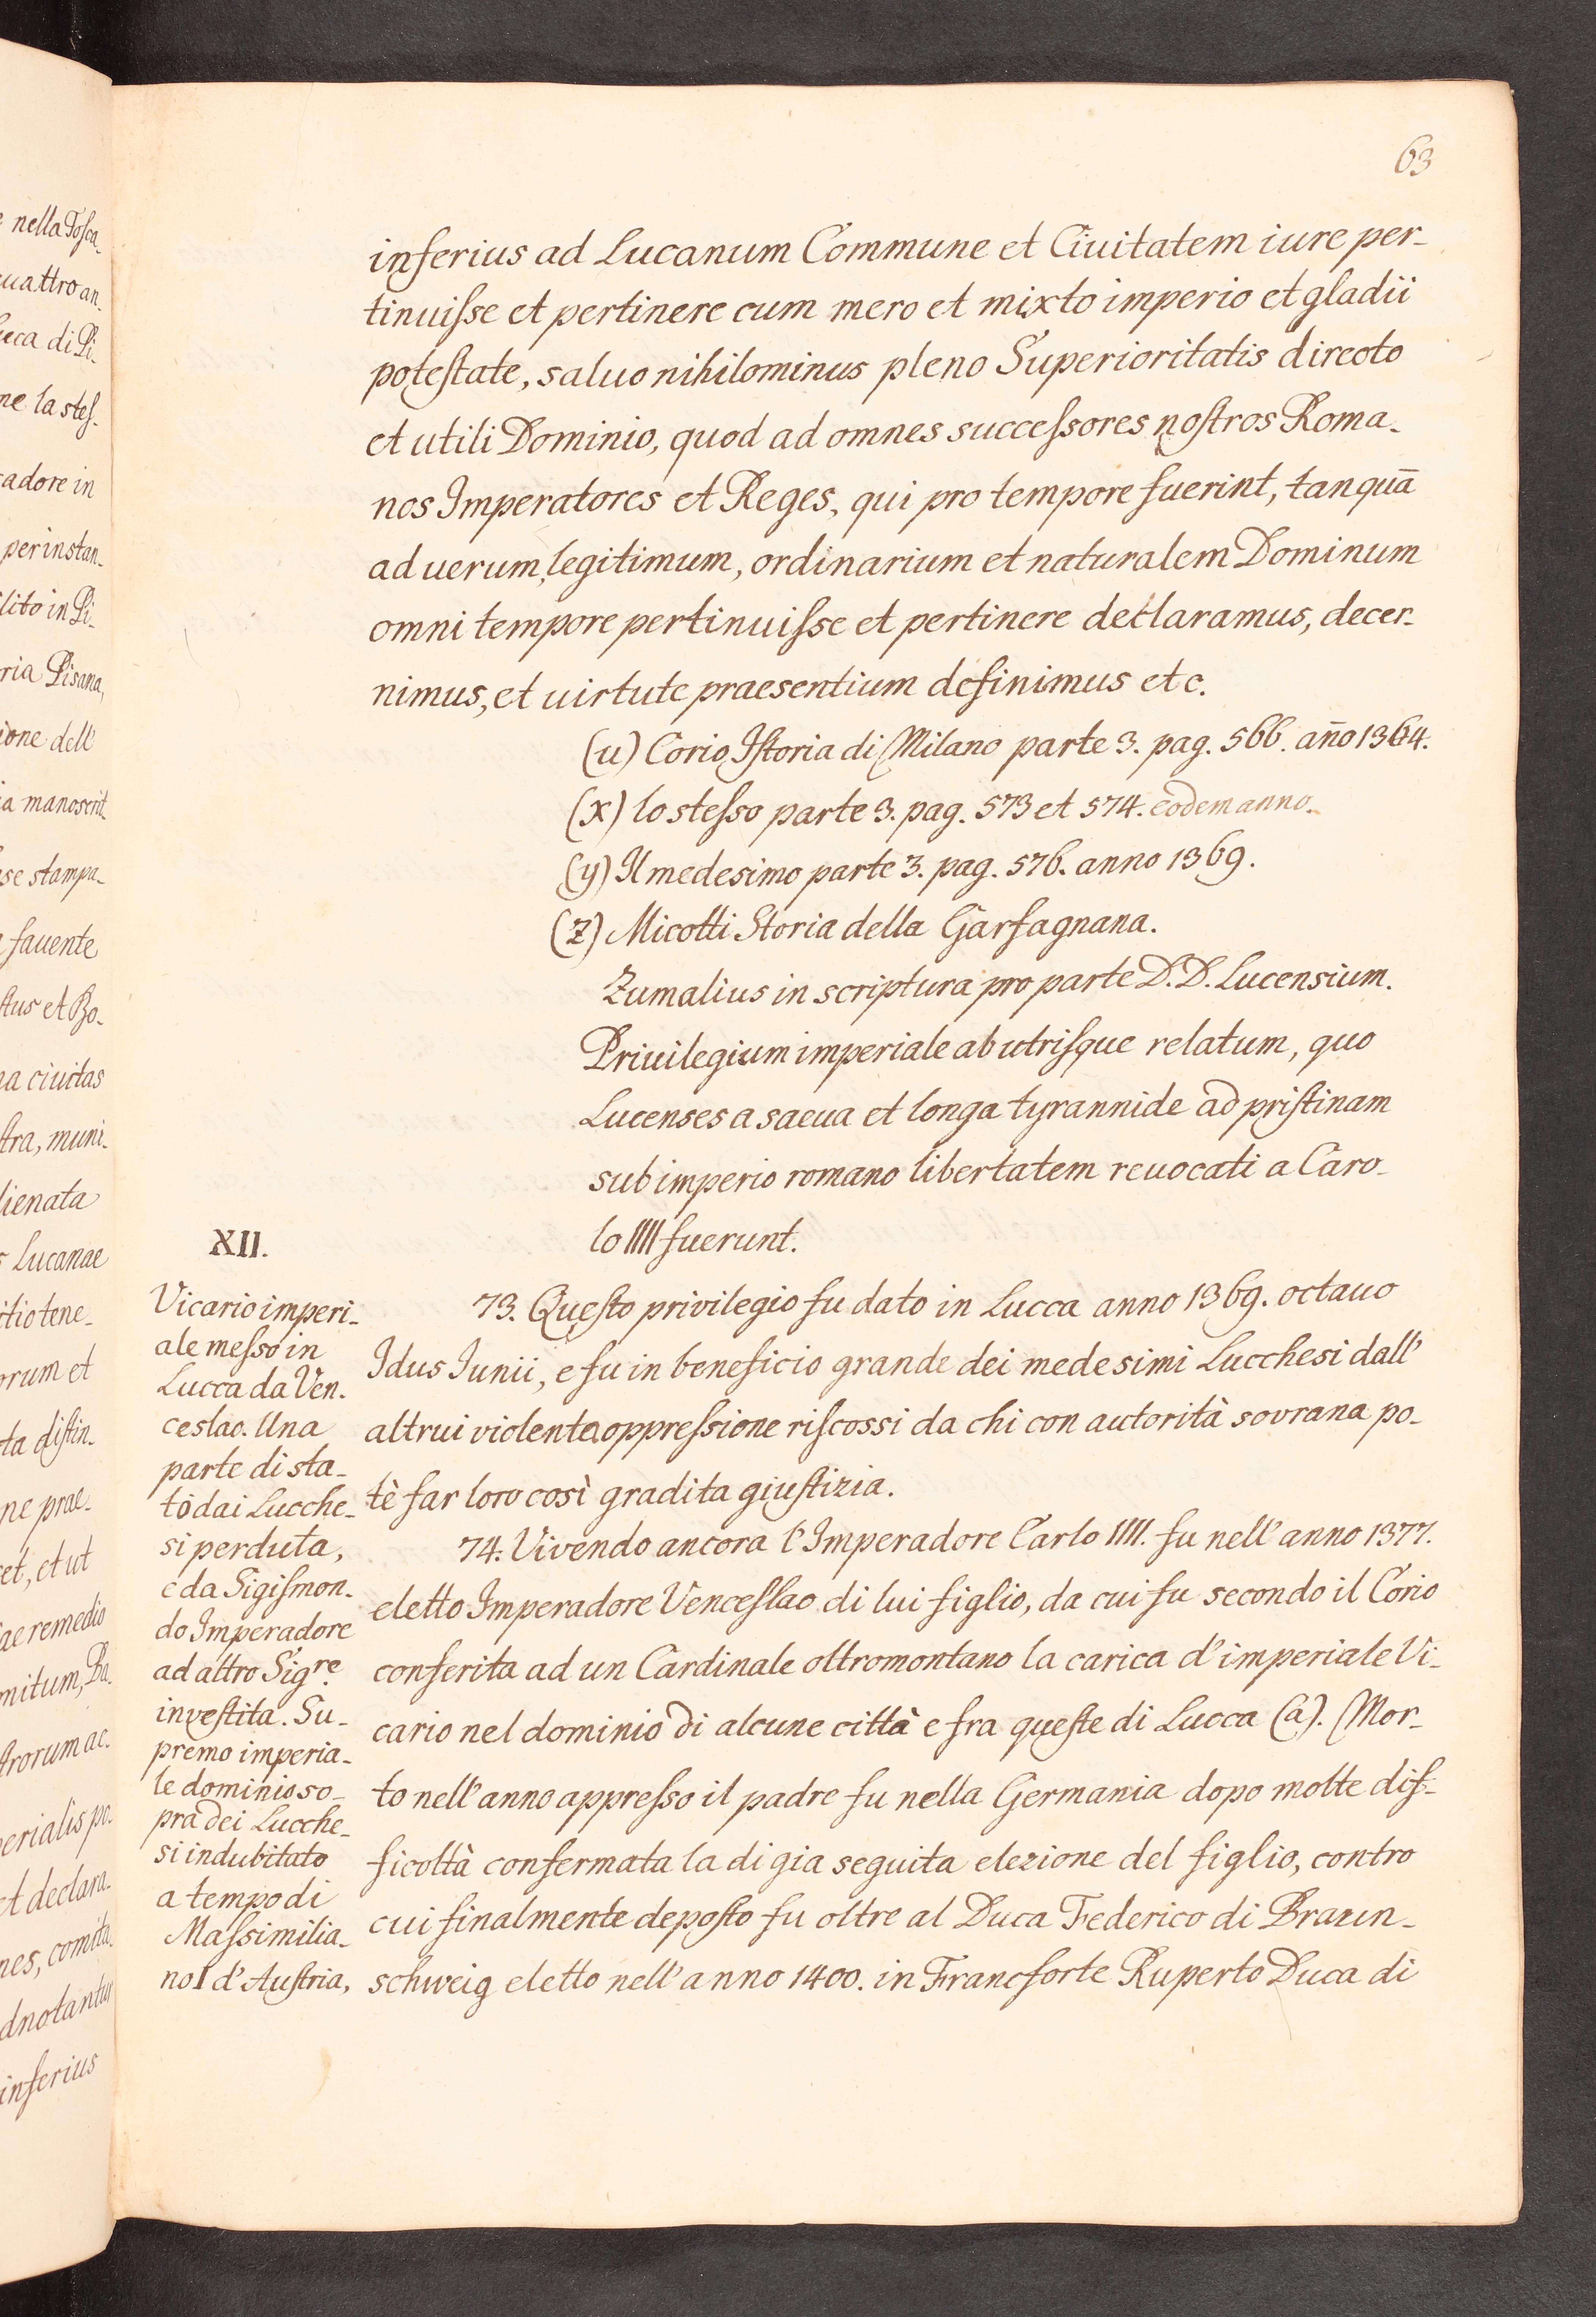 63
inferius ad Lucanum Commune et Ciuitatem iure per-
tinuiſse et pertinere cum mero et mixto imperio et gladii
poteſtate, saluo nihilominus pleno Superioritatis directo
et utili Dominio, quod ad omnes succeſsores noſtros Roma-
nos Imperatores et Reges, qui pro tempore fuerint, tanquā
ad uerum, legitimum, ordinarium et naturalem Dominum
omni tempore pertinuiſse et pertinere declaramus, decer-
nimus, et uirtute praesentium definimus etc.
(u) Corio Iſtoria di Milano parte 3. pag. 566. an̄o 1364.
(x) lo steſso parte 3. pag. 573 et 574. eodem anno.
(y) Il medesimo parte 3. pag. 576. anno 1369.
(z) Micotti Storia della Garfagnana.
Zumalius in scriptura pro parte D.D. Lucensium.
Priuilegium imperiale ab utriſque relatum, quo
Lucenses a saeua et longa tyrannide ad priſtinam
sub imperio romano libertatem reuocati a Caro-
lo IIII fuerunt.
XII.
Vicario imperi-
ale meſso in
Lucca da Ven-
ceslao. Una
parte di sta-
to dai Lucche-
si perduta,
e da Sigiſmon-
do Imperadore
ad altro Sigre
inveſtita. Su-
premo imperia-
le dominio so-
pra dei Lucche-
si indubitato
a tempo di
Maſsimilia-
no I d'Auſtria,
73. Queſto privilegio fu dato in Lucca anno 1369. octauo
Idus Iunii, e fu in beneficio grande dei medesimi Lucchesi dall'
altrui violenta oppreſsione riſcossi da chi con autorità sovrana po-
tè far loro così gradita giuſtizia.
74. Vivendo ancora l'Imperadore Carlo IIII. fu nell'anno 1377.
eletto Imperadore Venceſlao di lui figlio, da cui fu secondo il Corio
conferita ad un Cardinale oltromontano la carica d'imperiale Vi-
cario nel dominio di alcune città e fra queſte di Lucca (a). Mor-
to nell'anno appreſso il padre fu nella Germania dopo molte dif-
ficoltà confermata la di gia seguita elezione del figlio, contro
cui finalmente depoſto fu oltre al Duca Federico di Braun-
schweig eletto nell'anno 1400. in Francforte Ruperto Duca di